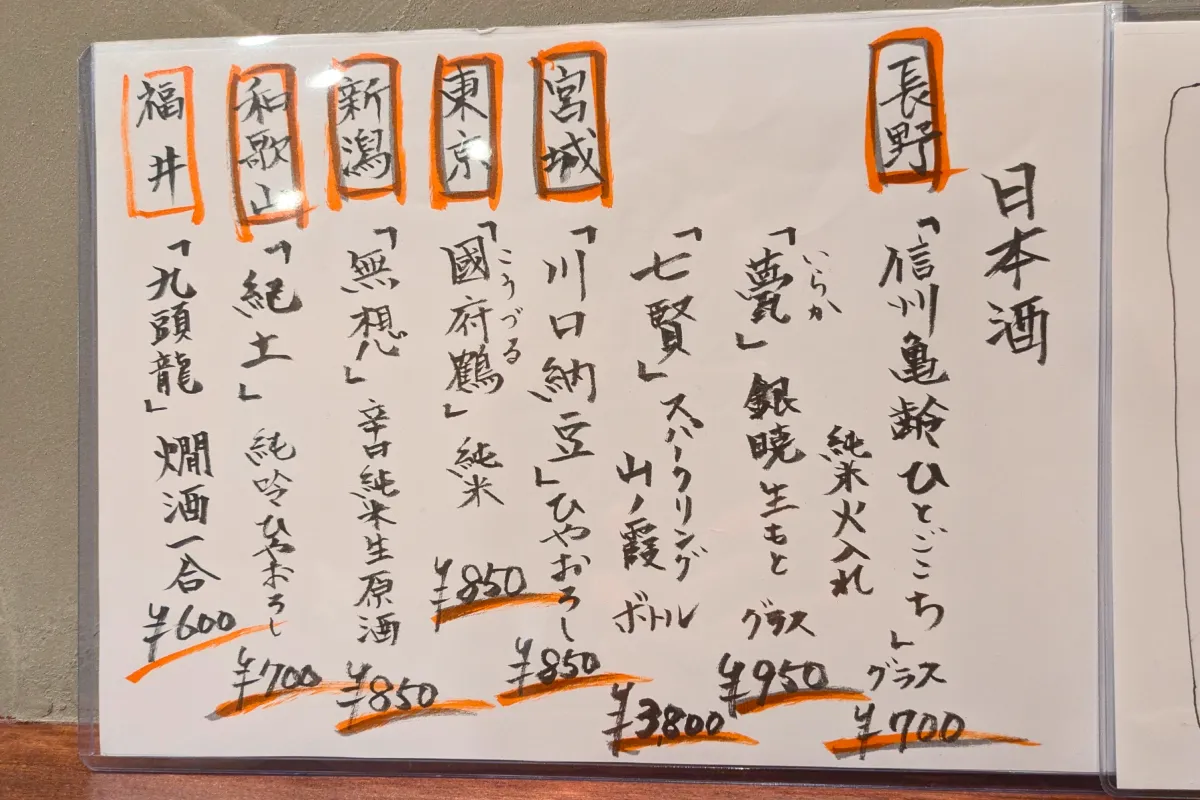 日本酒
長野
「信州亀齢ひとごこち」グラス
純米火入れ
¥700
いらか
「甍」銀暁生もと グラス
¥950
「七賢」スパークリング
山ノ霞 ボトル
¥3,800
宮城
「川口納豆」ひやおろし
¥850
東京
こうづる
「國府鶴」純米
¥850
新潟
「無想」辛口純米生原酒
¥850
和歌山
「紀土」純吟ひやおろし
¥700
福井
「九頭龍」燗酒一合
¥600